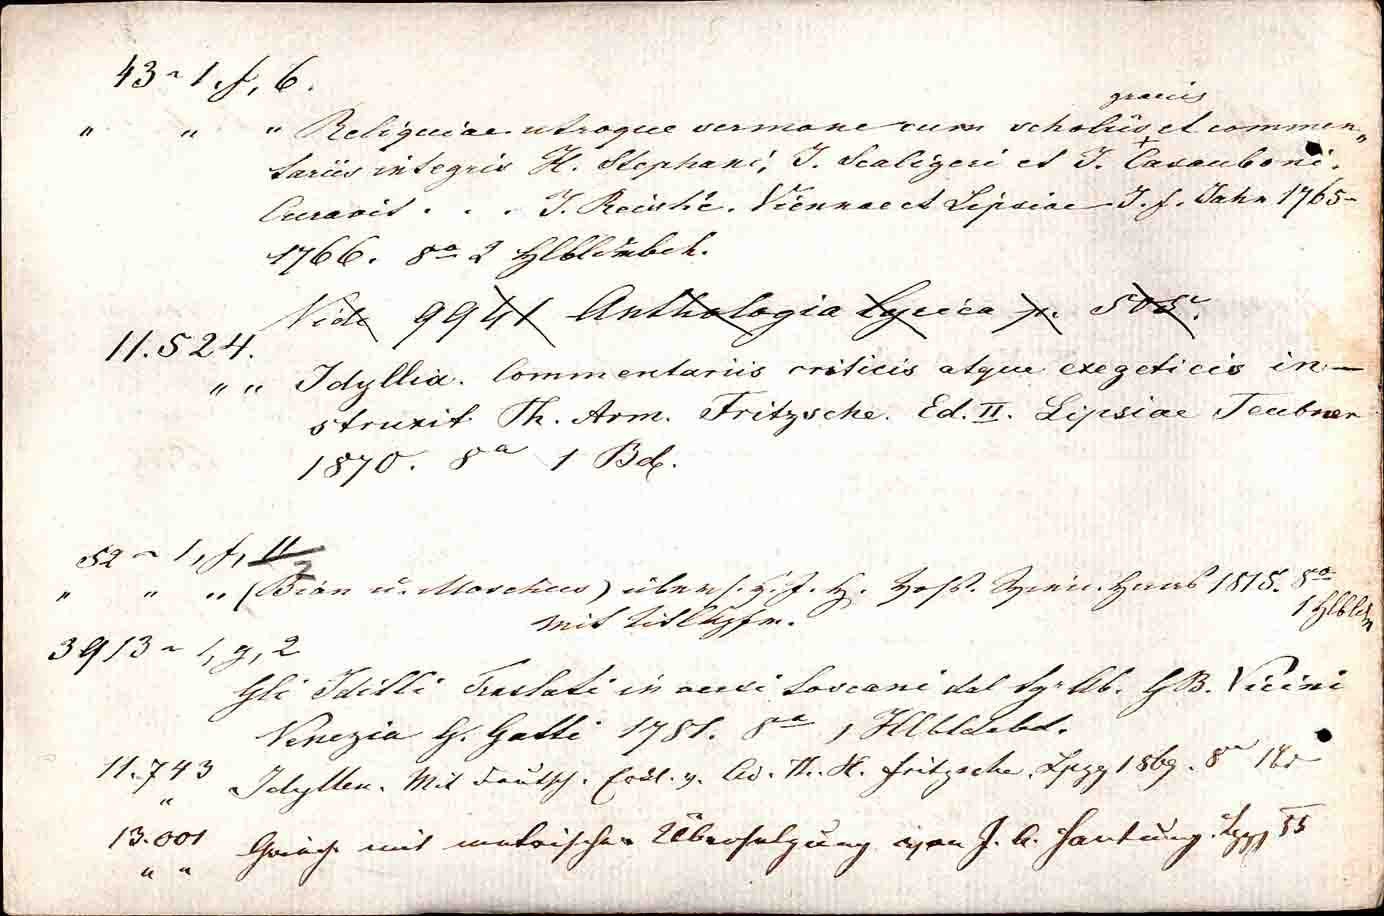 43 ~ 1, f, 6.
graecis
" " " Reliquiae utroque sermone cum scholiis et commen„
tariis integris H. Stephani, J. Scaligeri et J. Casauboni.
Curavit . . . J. Reiske. Viennae et Lipsiae J. f. Jahn 1765–
1766. 8a 2 Hlbldrbde.
Vide 9941 Anthologia Lyrica p. 505.
11.524.
" " Idyllia. Commentariis criticis atque exegeticis in–
struxit Th. Arm. Fritzsche. Ed. II. Lipsiae Teubner
1870. 8a 1 Bd.
52 ~ 1, f, 11
7
" " " (Bion u. Moschus) übers. v. J. H. Voß. 1815. 8a
1 Hlbldr
mit Titelkpfrn.
3913 ~ 1, g, 2
Gli Idilli Traslati in versi toscani dal Sgr Ab. G.B. Vicini
Venezia G. Gatti 1781. 8a 1 Hlbldrbd.
11.743 Idyllen. Mit deutsch. Erkl. v. Ad. Th. H. Fritzsche. Lpzg 1869. 8a
"
13.001 Griech. mit metrischer Übersetzung von J. A. Hartung. Lpzg 58
" "